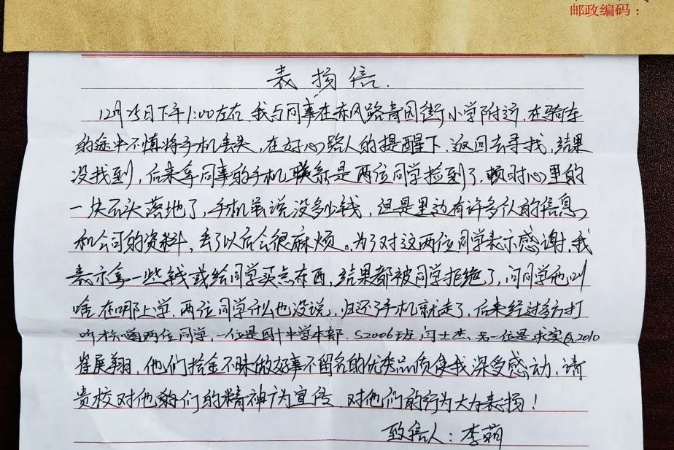 邮政编码：
表扬信.
12月25日下午1:00左右 我与同事在东风路育因街小学附近，在骑车
的途中不慎将手机丢失，在好心路人的提醒下，返回去寻找，结果
没找到，后来拿同事的手机联系是两位同学捡到了，顿时心里的
一块石头落地了，手机虽说没多少钱，但是里边有许多人的信息，
和公司的资料，丢了以后会很麻烦。为了对这两位同学表示感谢，我
表示拿一些钱或给同学买点东西，结果都被同学拒绝了，问同学他叫
啥在哪上学，两位同学什么也没说，归还手机就走了，后来经过多方打
听 两位同学，一位是 中学本部，S2006班，闫士杰，另一位是求实 2010
崔晨翔，他们拾金不昧做好事不留名的优秀品质使我深受感动，请
贵校对他们的精神广为宣传，对他们的行为大力表扬！
致信人：李萌